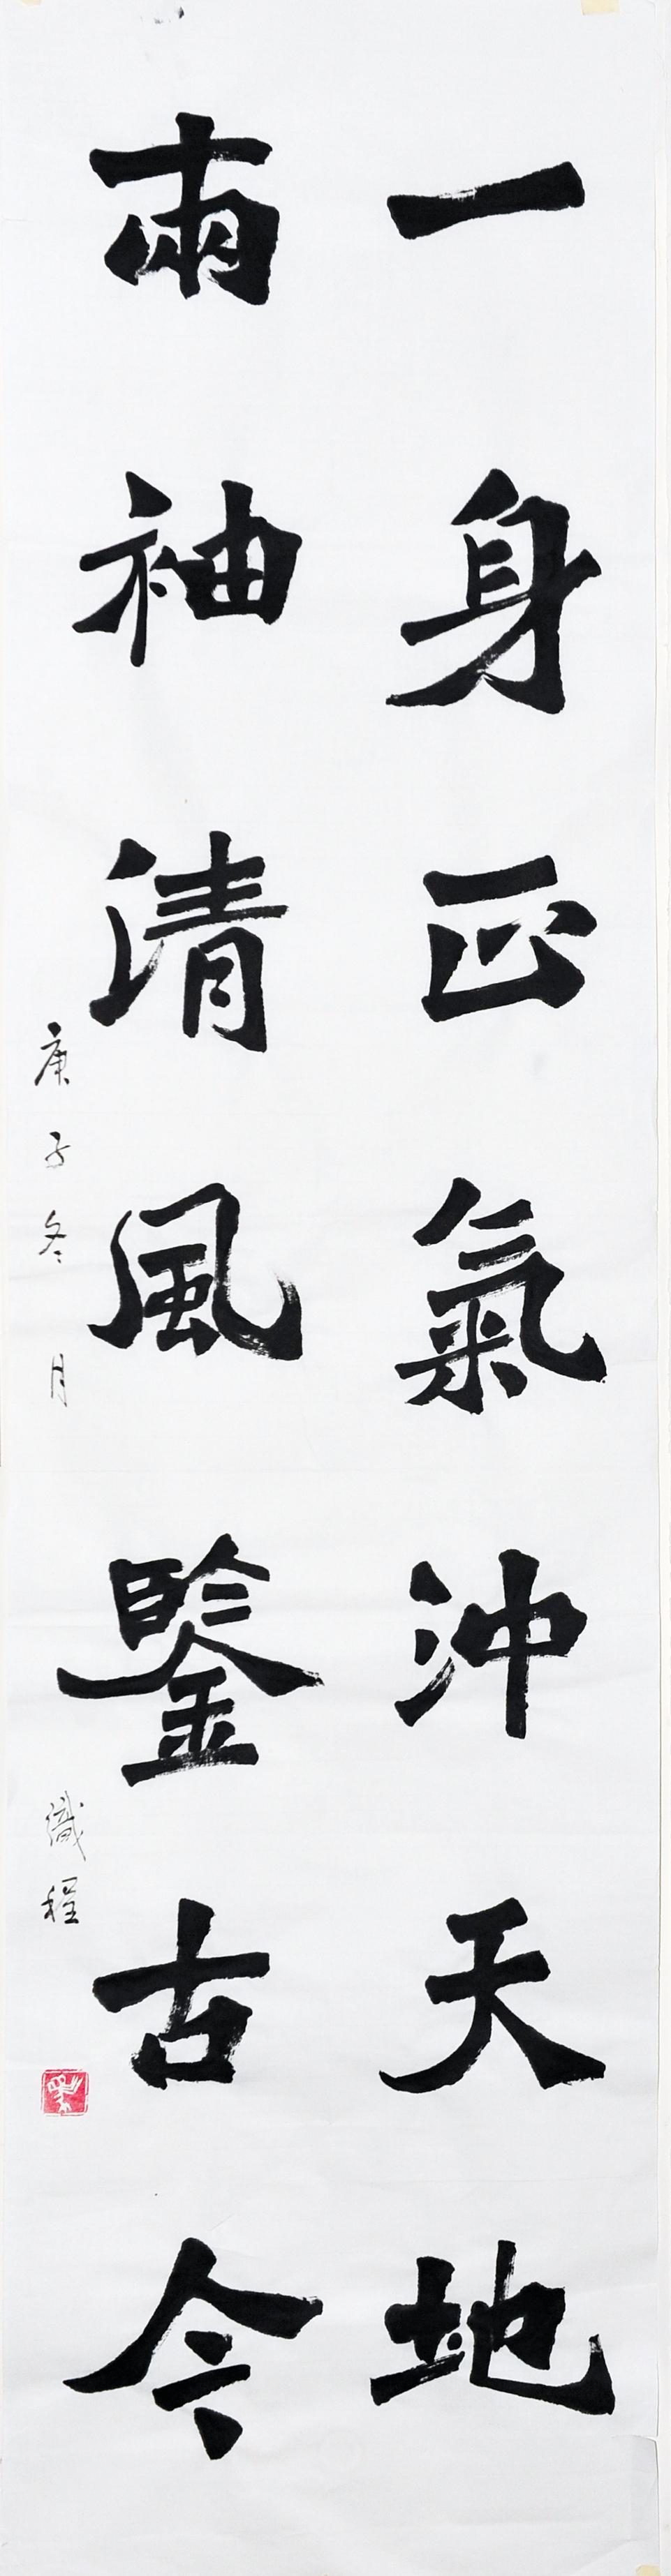 一身正氣沖天地
兩袖清風鑒古今
庚子冬月
織程